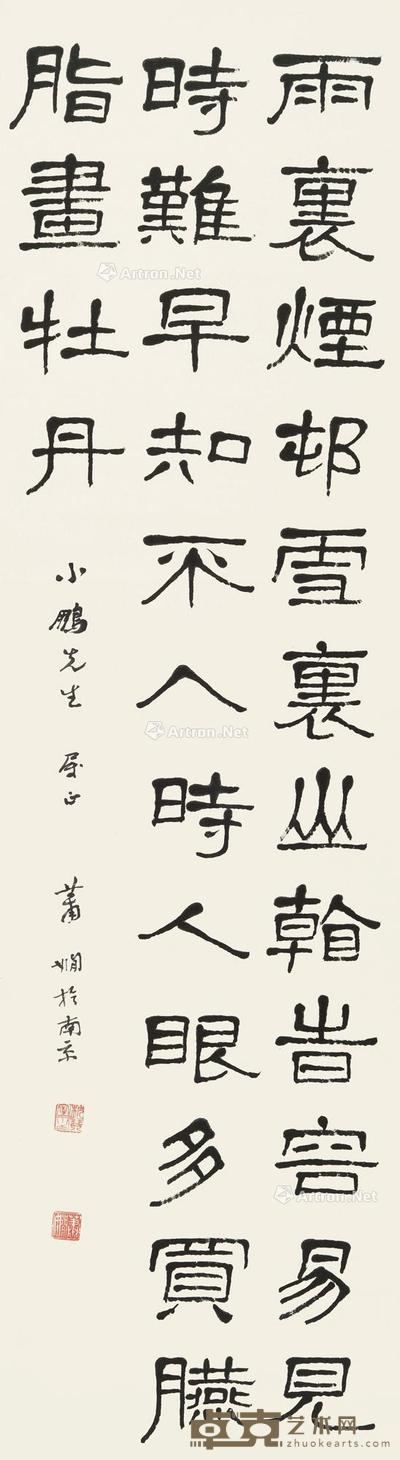 雨裏煙邨雪裏山看旹容易見
時難早知不入時人眼多買臙
脂畫牡丹
小鵬先生 属正 蕭嫻於南京
Artron.Net
Artron.Net
Artron.Net
卓克艺术网
zhuokearts.com